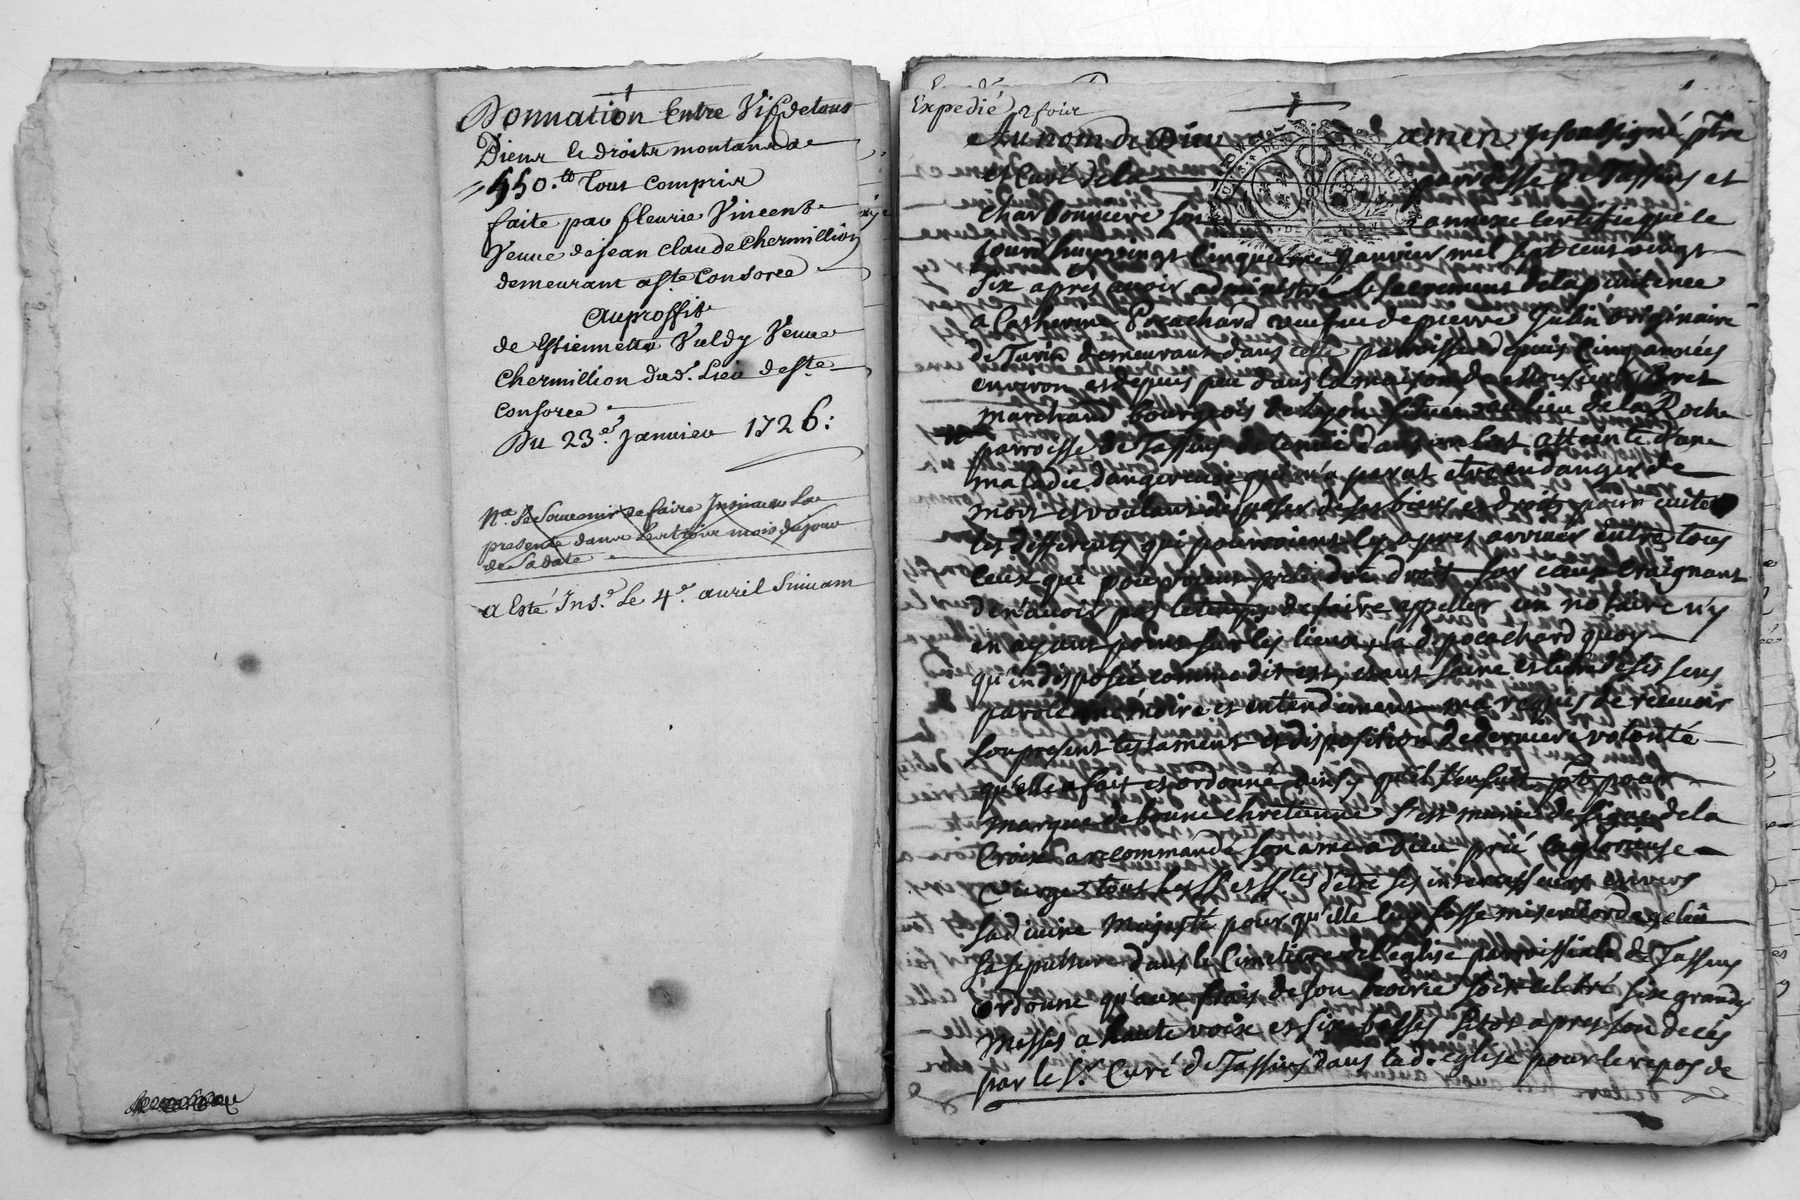 Donnation Entre Vifs de tous
Biens & droits montans a
450.tt tout compris
faite par fleurie Vincent
Veuve de jean claude chermillion
demeurant a ste Consorce
Au proffit
de Estiennette Valdy Veuve
Chermillion dud. Lieu de ste
Consorce
Du 23e. Janvier 1726:
Na. Se Souvenir de faire Insinuer La
presente dans les trois mois du jour
de Sa date
a Esté Ins.é Le 4e. avril Suivant
Expedié 2 fois
Au nom de Dieu amen Je soubsigné ptre
et Curé de la parroisse de Tassins et
Charbonniere son annexe certifie que le
jourdhuy vingt cinquieme Janvier mil sept cent vingt
six apres avoir administré le sacrement de la penitence
a Catherine Pocachard veufve de pierre Julin originaire
de Turin demeurant dans cette parroisse depuis cinq années
environ et depuis peu dans la maison de
marchand bourgeois de Lyon située au lieu de la Roche
parroisse de Tassins detenue dans un lict atteinte d'une
maladie dangereuse qui m'a parut etre en danger de
mort et voulant disposer de ses biens et droits pour eviter
les differents qui pourroient cy apres arriver entre tous
ceux qui pourroient pretendre droit sur iceux craignant
de n'avoir pas le temps de faire appeller un notaire n'y
en ayant point sur les lieux, lad. pocachard quoy
qu'indisposée comme dit est, etant saine et libre de ses sens
parole memoire et entendement m'a requis de recevoir
son present testament et disposition de derniere volonté
qu'elle a fait et ordonné ainsy qu'il s'ensuit pt pour
marque de bonne chretienne s'est munie du signe de la
Croix a recommandé son ame a dieu prié la glorieuse
Vierge tous les Sts et Stes d'etre ses intercesseurs envers
sa divine Majesté pour qu'elle luy fasse misericorde eslû
sa sepulture dans le Cimetiere de l'eglise parroissiale de Tassins
ordonne qu'aux frais de son hoirie soit celebré six grandes
Messes a haute voix et six basses sitot apres son decés
par le sr. Curé de Tassins dans lad. eglise pour le repos de